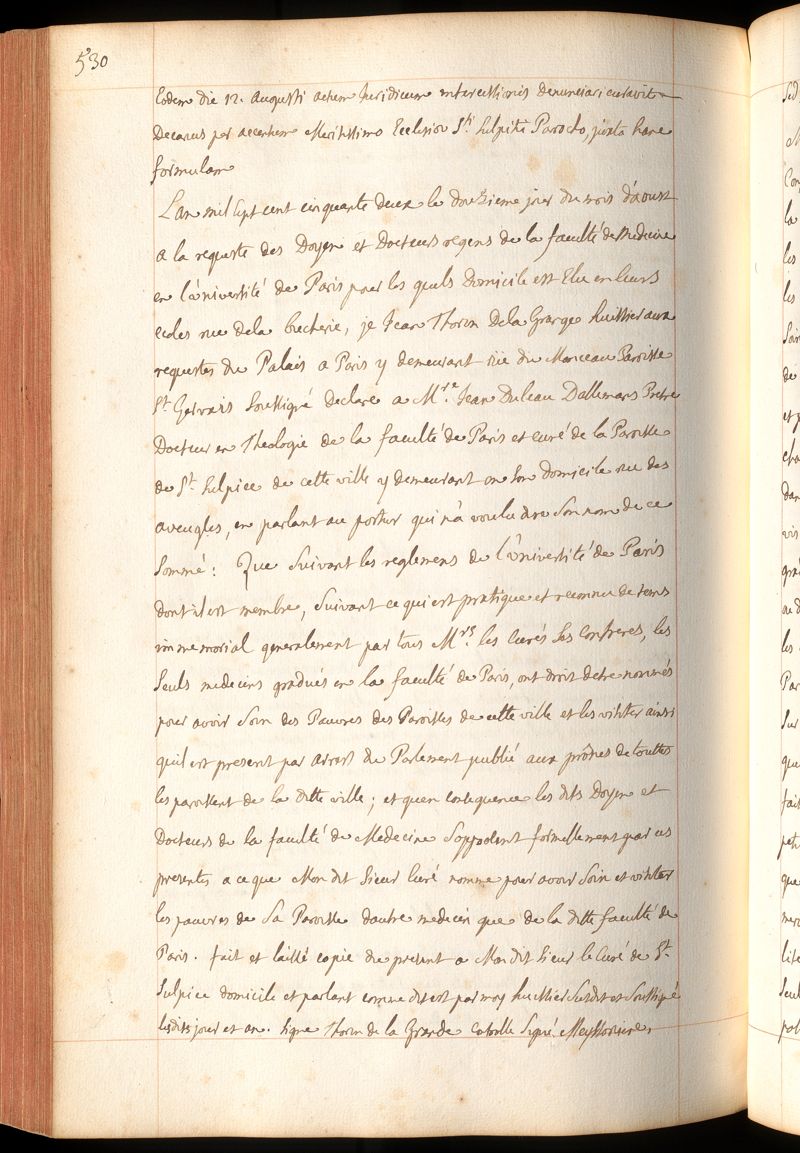 530
Eodem die 12. Augusti actum Juridicum intercessionis denunciari curavit
Decanus per accensum Meritissimo Ecclesiæ Sti Sulpitii Parocho, juxta hanc
formulam
L'an mil sept cent cinquante deux le douzieme jour du mois d'aoust
a la requeste des Doyen et Docteurs regens de la faculté de Medecine
en l'université de Paris pour les quels Domicile est Elu en leurs
ecoles rue de la bucherie, je Jean Thorin De la Grange huissier aux
requestes du Palais a Paris y demeurant rue du Monceau Paroisse
St. Gervais soussigné declare a Mre. Jean Duleau Dallemans Pretre
Docteur en Theologie de la faculté de Paris et curé de la Paroisse
de St. Sulpice de cette ville y demeurant en son domicile rue des
aveugles, en parlant au portier qui n'a voulu dire son nom de ce
sommé: Que suivant les reglemens de l'université de Paris
dont il est membre, suivant ce qui est pratique et reconnu de tems
immemorial generalement par tous Mrs. les curés ses confreres, les
seuls medecins gradués en la faculté de Paris, ont droit detre nommés
pour avoir soin des Pauvres des Paroisses de cette ville et les visiter ainsi
quil est present par arrest du Parlement publié aux prônes de touttes
les paroisses de la ditte ville; et qu'en consequence les dits Doyen et
Docteurs de la faculté de Medecine s'opposent formellement par ces
presentes a ce que Mon dit sieur curé nomme pour avoir soin et visiter
les pauvres de sa Paroisse dautre medecin que de la ditte faculté de
Paris. fait et laissé copie du present a Mon dit sieur le Curé de St.
Sulpice domicile et parlant comme dit est par moy huissier susdit et soussigné
lesdits jour et an. signé Thorin de la Grande Controllé Signé